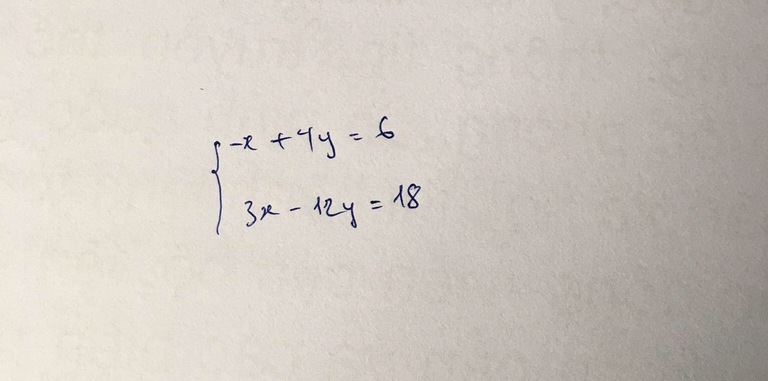 -x + 4y = 6
3x - 12y = 18